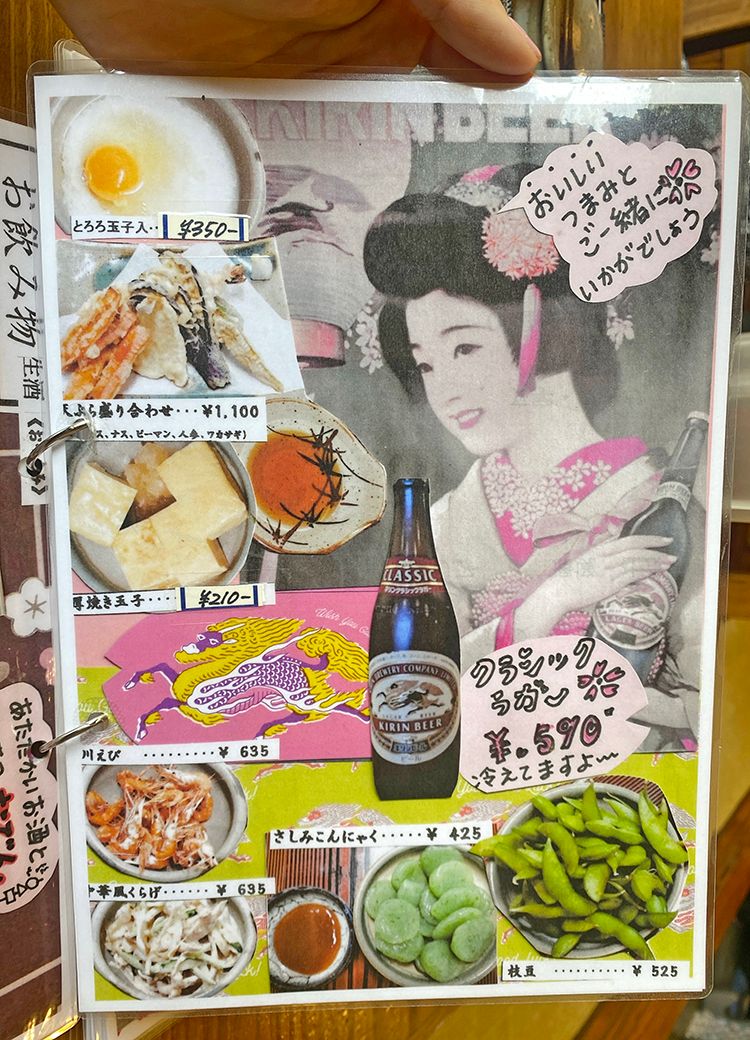 KIRIN BEER
おいしい
つまみと
ご一緒に
いかがでしょう
とろろ玉子入‥ ¥350-
天ぷら盛り合わせ・・・¥1,100
ス、ナス、ピーマン、人参、ワカサギ)
厚焼き玉子・・・・ ¥210-
CLASSIC
キリンクラシックラガー
BREWERY COMPANY, LIMITED
LAGER BEER
KIRIN BEER
ビール
LAGER BEER
Wish You
クラシック
ラガー
¥.590-
冷えてますよ〜
川えび ・・・・・・・・・・・ ¥ 635
中華風くらげ・・・・・・ ¥ 635
さしみこんにゃく・・・・・ ¥ 425
枝豆 ・・・・・・・・・・ ¥ 525
お飲み物
生酒
《お
あたたかいお酒と
おでん